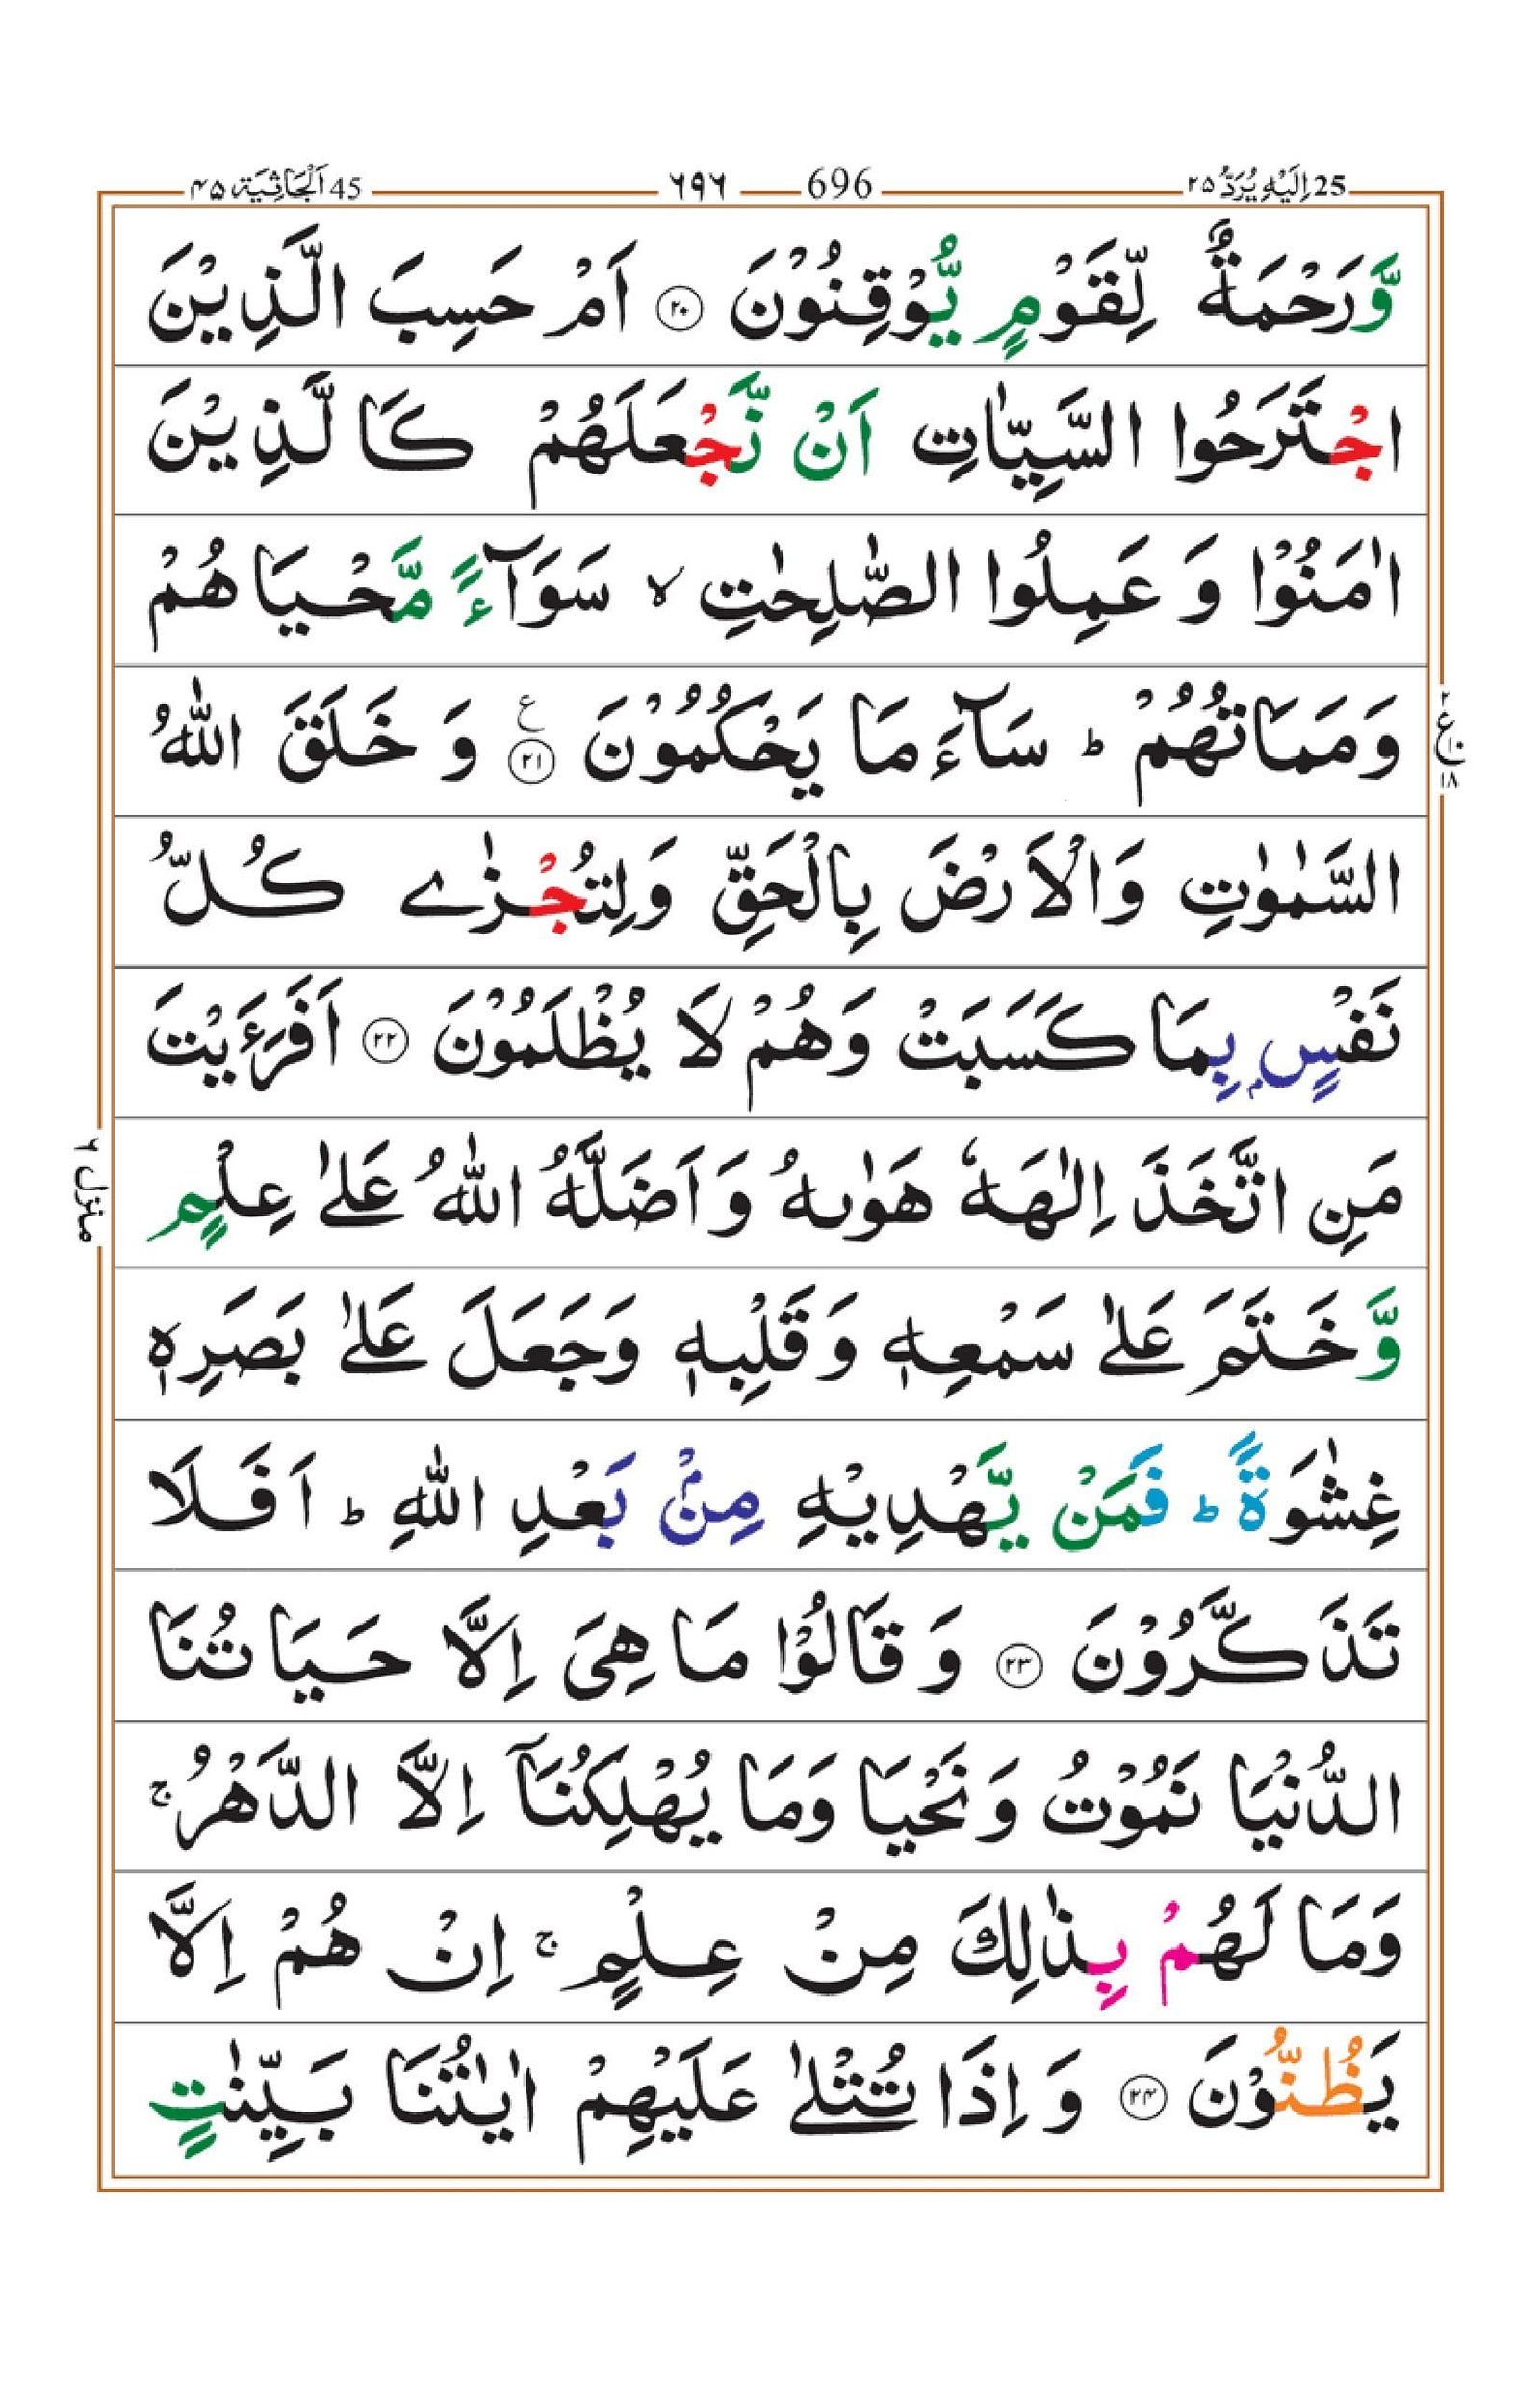 25 اِلَيْهِ يُرَدُّ ۲۵
696 ۶۹۶
45 اَلْجَاثِيَة ۴۵
وَّرَحْمَةٌ لِّقَوْمٍ يُّوْقِنُوْنَ ۲۰ اَمْ حَسِبَ الَّذِيْنَ
اجْتَرَحُوا السَّيِّاٰتِ اَنْ نَّجْعَلَهُمْ كَالَّذِيْنَ
اٰمَنُوْا وَ عَمِلُوا الصّٰلِحٰتِ ۙ سَوَآءً مَّحْيَاهُمْ
وَمَمَاتُهُمْ ؕ سَآءَ مَا يَحْكُمُوْنَ ۲۱ ع وَ خَلَقَ اللّٰهُ
۲ ع ۱۰ ۱۸
السَّمٰوٰتِ وَالْاَرْضَ بِالْحَقِّ وَلِتُجْزٰے كُلُّ
نَفْسٍۭ بِمَا كَسَبَتْ وَهُمْ لَا يُظْلَمُوْنَ ۲۲ اَفَرَءَيْتَ
مَنِ اتَّخَذَ اِلٰهَهٗ هَوٰىهُ وَاَضَلَّهُ اللّٰهُ عَلٰى عِلْمٍ
منزل ۶
وَّخَتَمَ عَلٰى سَمْعِهٖ وَقَلْبِهٖ وَجَعَلَ عَلٰى بَصَرِهٖ
غِشٰوَةً ؕ فَمَنْ يَّهْدِيْهِ مِنْۢ بَعْدِ اللّٰهِ ؕ اَفَلَا
تَذَكَّرُوْنَ ۲۳ وَ قَالُوْا مَا هِىَ اِلَّا حَيَاتُنَا
الدُّنْيَا نَمُوْتُ وَنَحْيَا وَمَا يُهْلِكُنَآ اِلَّا الدَّهْرُ ۚ
وَمَا لَهُمْ بِذٰلِكَ مِنْ عِلْمٍ ۚ اِنْ هُمْ اِلَّا
يَظُنُّوْنَ ۲۴ وَ اِذَا تُتْلٰى عَلَيْهِمْ اٰيٰتُنَا بَيِّنٰتٍ